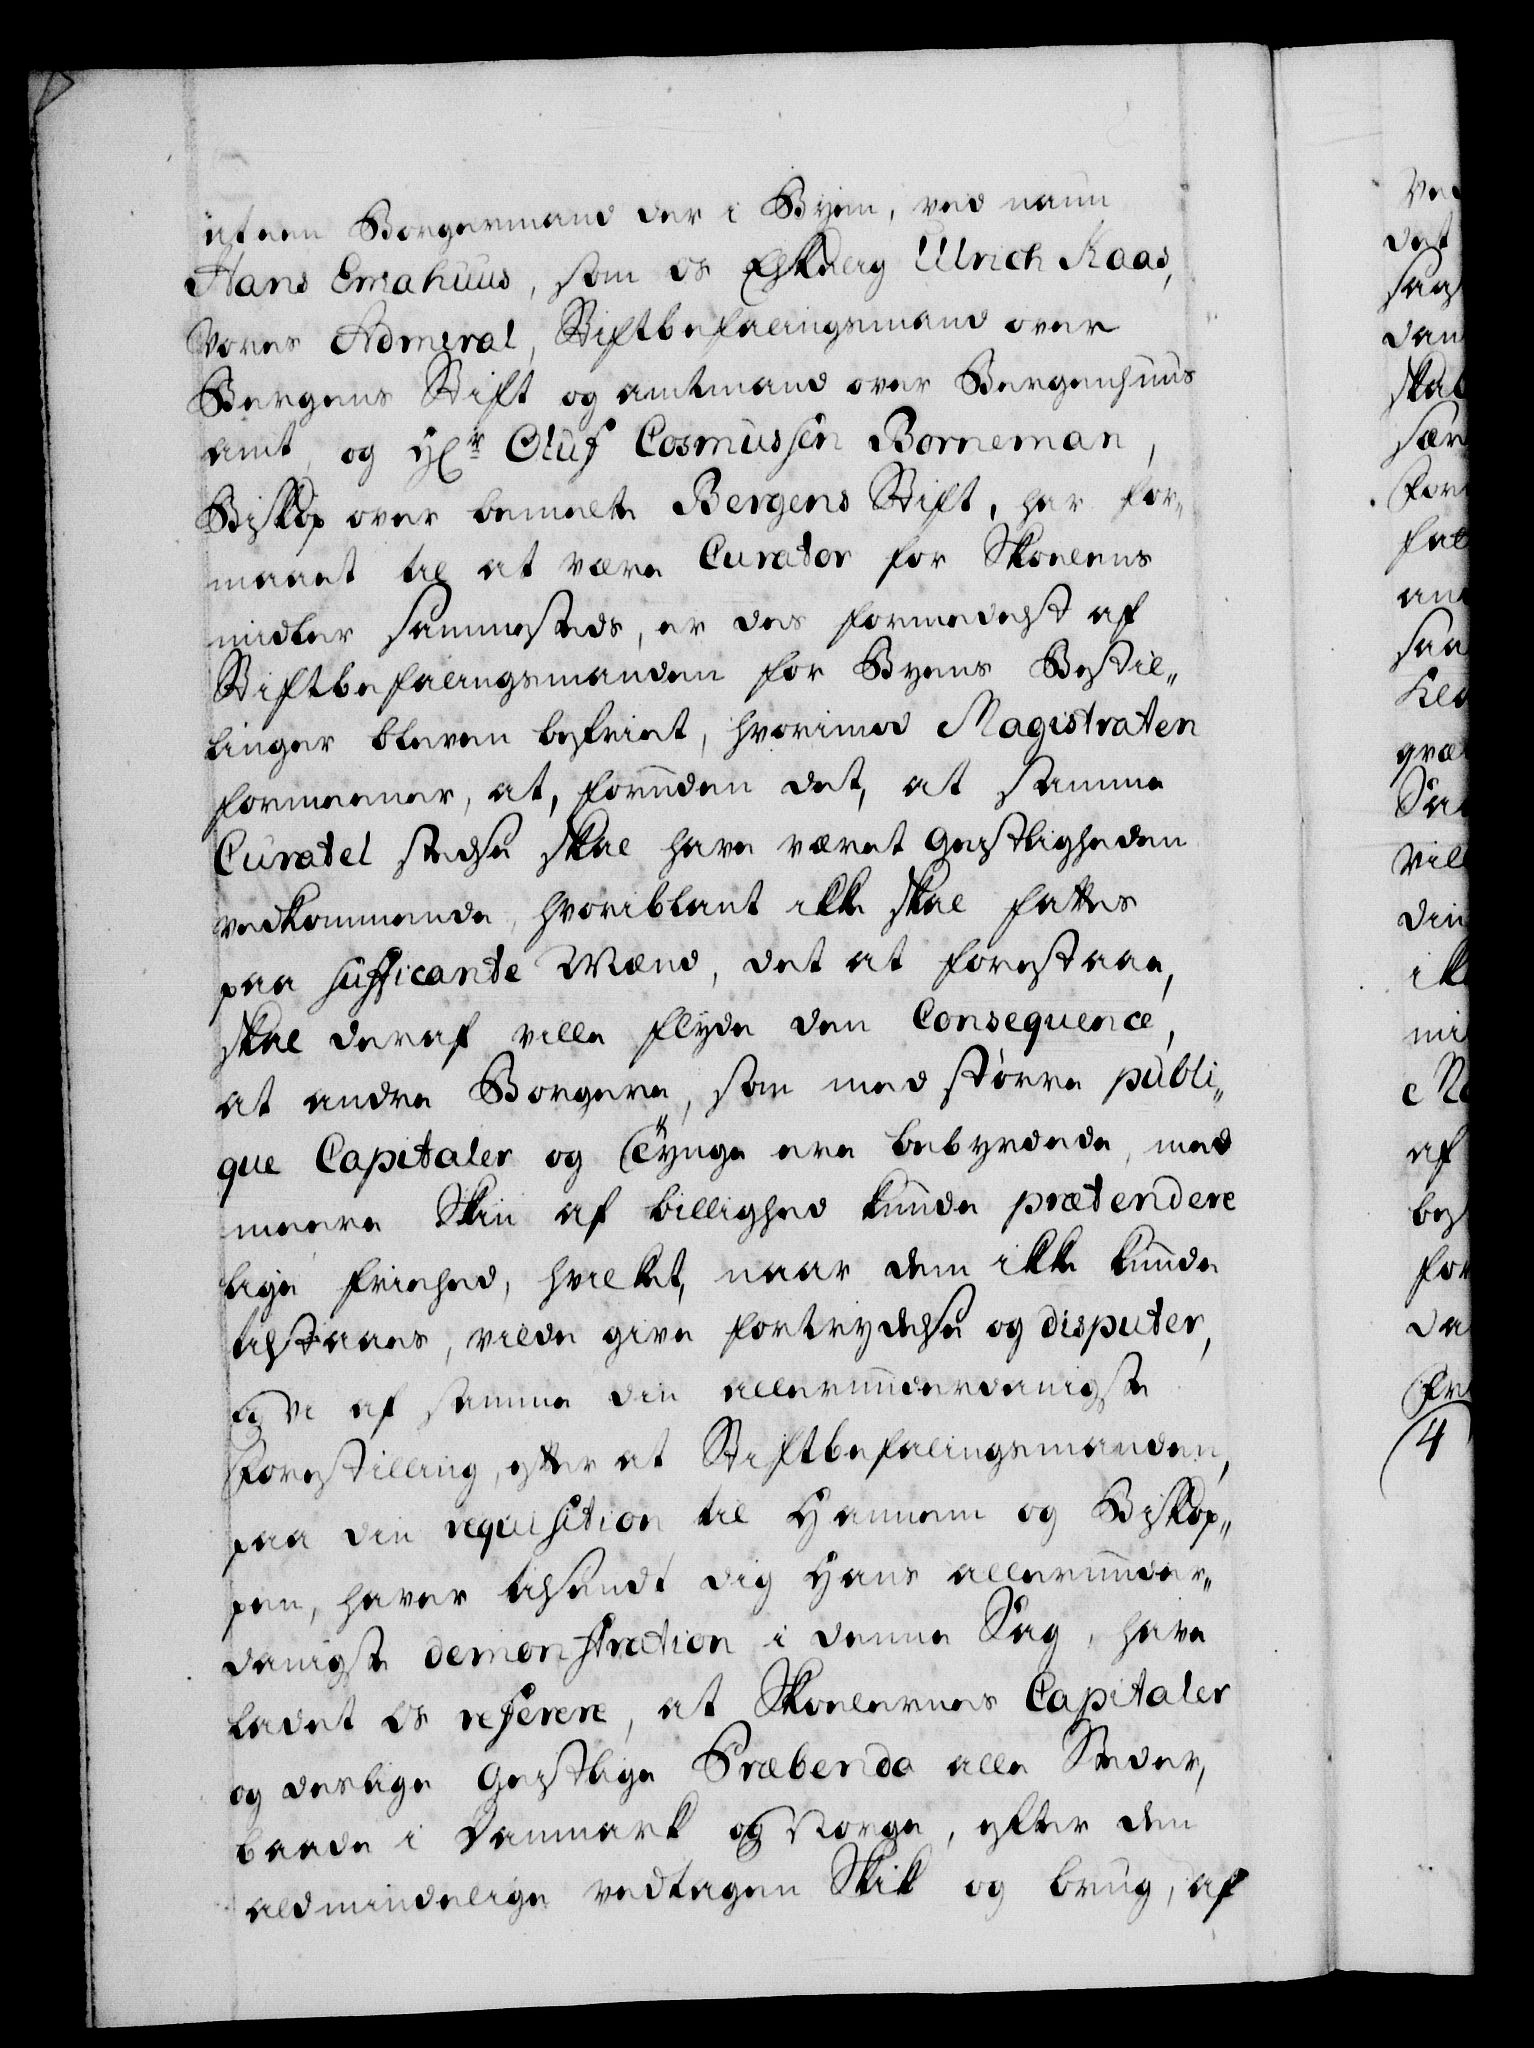 at een Borgermand der i Byen, ved nafn
Hans Emahuus, som Os Elskelig Ulrich Kaas,
Vores Admiral, Stiftbefalingsmand over
Bergens Stift og amtmand over Bergenhuus
amt, og Hr Oluf Cosmussen Borneman,
Biskop over bemelte Bergens Stift, har for„
maaet til at være Curator for Skoelens
midler sammesteds, er des formedelst af
Stiftbefalingsmanden for Byens Bestil„
linger bleven befriet, hvorimod Magistraten
formeener, at, foruden det, at samme
Curatel stedse skal have været Geistligheden
vedkommende, hvoriblant ikke skal fattes
paa sufficante Mænd, det at forestaae,
skal deraf ville flyde den Consequence,
at andre Borgere, som med större publi„
que Capitaler og Tynge ere bebyrdede, med
meere Skin af billighed kunde prætendere
lige friehed, hvilket, naar dem ikke kunde
tilstaaes, vilde give fortrydelse og disputer,
Og vi af samme din allerunderdanigste
Forestilling, efter at Stiftbefalingsmanden,
paa din requisition til Hannem og Biskop„
pen, haver tilsendt dig Hans allerunder„
danigste demonstration i denne Sag, have
ladet Os referere, at Skoelernes Capitaler
og deslige Geistlige Præbenda alle Steder,
baade i Danmark og Norge, efter den
aldmindelige vedtagen Skik og brug, af